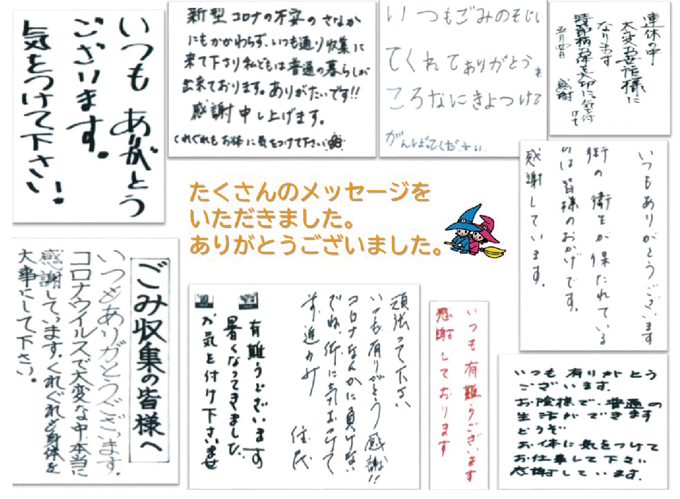 いつも ありがとう
ございます。
気をつけて下さい!
新型コロナの不安のさなか
にもかかわらず、いつも通り収集に
来て下さり私どもは普通の暮らしが
出来ております。ありがたいです!!
感謝申し上げます。
くれぐれもお体に気をつけて下さい
いつもごみのそじし
てくれてありがとう
ころなにきよつけて
がんばてください
連休の中
大変お世話様に
なります
時節柄お体を大切に気を付けて
五月四日 感謝
いつもありがとうございます
街の衛生が保たれている
のは皆様のおかげです。
感謝しています。
たくさんのメッセージを
いただきました。
ありがとうございました。
ごみ収集の皆様へ
いつもありがとうございます。
コロナウイルスで大変な中、本当に
感謝してます。くれぐれも身体を
大事にして下さい。
有難うございます
暑くなってきました
お気を付け下さいませ
頑張って下さい
いつも有りがとう 感謝!!
コロナなんかに負けない
でね、体に気をつけて
住民
いつも有難うございます
感謝しております
いつも有りがとう
ございます。
お陰様で、普通の
生活ができます
どうぞ
お体に気をつけて
お仕事して下さい
感謝しています。